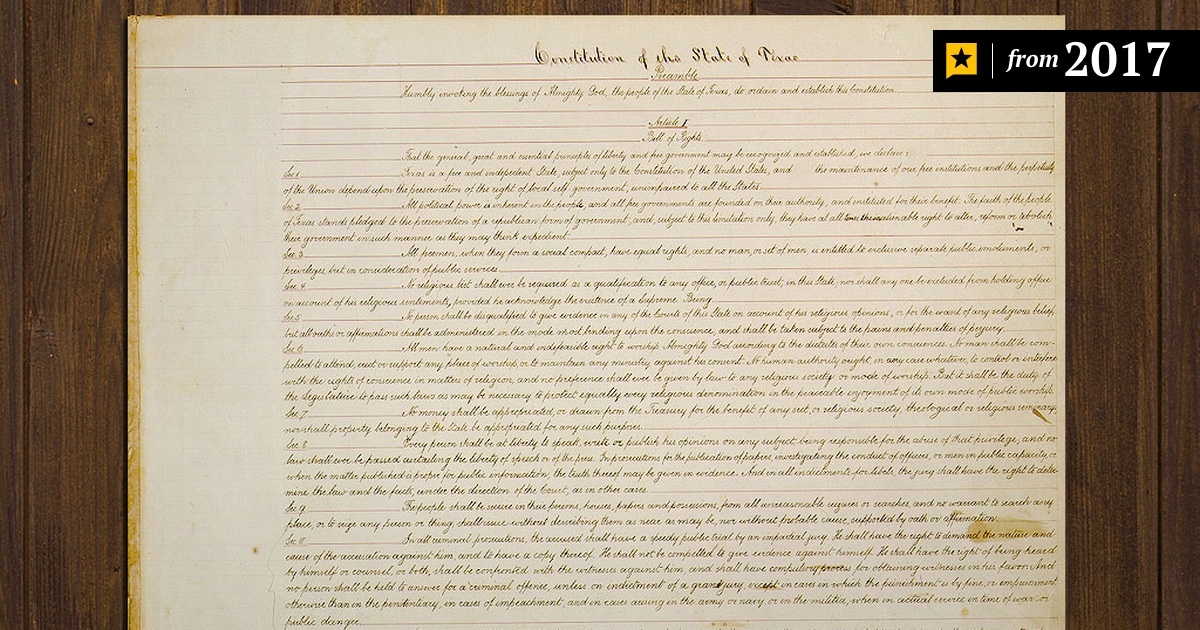 from 2017
Constitution of the State of Texas
Preamble
Humbly invoking the blessings of Almighty God, the people of the State of Texas, do ordain and establish this Constitution
Article I
Bill of Rights
That the general, great and essential principles of liberty and free government may be recognized and established, we declare:
Sec 1 Texas is a free and independent State, subject only to the Constitution of the United States, and the maintenance of our free institutions and the perpetuity
of the Union depend upon the preservation of the right of local self government, unimpaired to all the States.
Sec 2 All political power is inherent in the people, and all free governments are founded on their authority, and instituted for their benefit. The faith of the people
of Texas stands pledged to the preservation of a republican form of government, and, subject to this limitation only, they have at all times the inalienable right to alter, reform or abolish
their government in such manner as they may think expedient.
Sec 3 All freemen, when they form a social compact, have equal rights, and no man, or set of men, is entitled to exclusive separate public emoluments, or
privileges, but in consideration of public services.
Sec 4 No religious test shall ever be required as a qualification to any office, or public trust, in this State; nor shall any one be excluded from holding office
on account of his religious sentiments, provided he acknowledge the existence of a Supreme Being.
Sec 5 No person shall be disqualified to give evidence in any of the Courts of this State on account of his religious opinions, or for the want of any religious belief,
but all oaths or affirmations shall be administered in the mode most binding upon the conscience, and shall be taken subject to the pains and penalties of perjury.
Sec 6 All men have a natural and indefeasible right to worship Almighty God according to the dictates of their own consciences. No man shall be com-
pelled to attend, erect or support any place of worship, or to maintain any ministry against his consent. No human authority ought, in any case whatever, to control or interfere
with the rights of conscience in matters of religion, and no preference shall ever be given by law to any religious society or mode of worship. But it shall be the duty of
the Legislature to pass such laws as may be necessary to protect equally every religious denomination in the peaceable enjoyment of its own mode of public worship.
Sec 7 No money shall be appropriated, or drawn from the Treasury for the benefit of any sect, or religious society, theological or religious seminary,
nor shall property belonging to the State be appropriated for any such purposes.
Sec 8 Every person shall be at liberty to speak, write or publish his opinions on any subject, being responsible for the abuse of that privilege, and no
law shall ever be passed curtailing the liberty of speech or of the press. In prosecutions for the publication of papers investigating the conduct of officers, or men in public capacity, or
when the matter published is proper for public information, the truth thereof may be given in evidence. And in all indictments for libels, the jury shall have the right to deter-
mine the law and the facts, under the direction of the Court, as in other cases.
Sec 9 The people shall be secure in their persons, houses, papers and possessions, from all unreasonable seizures or searches, and no warrant to search any
place, or to seize any person or thing, shall issue without describing them as near as may be, nor without probable cause, supported by oath or affirmation.
Sec 10 In all criminal prosecutions, the accused shall have a speedy public trial by an impartial jury. He shall have the right to demand the nature and
cause of the accusation against him, and to have a copy thereof. He shall not be compelled to give evidence against himself. He shall have the right of being heard
by himself or counsel, or both, shall be confronted with the witnesses against him, and shall have compulsory process for obtaining witnesses in his favor. And
no person shall be held to answer for a criminal offence, unless on indictment of a grand jury, except in cases in which the punishment is by fine, or imprisonment
otherwise than in the penitentiary, in cases of impeachment, and in cases arising in the army or navy, or in the militia, when in actual service in time of war or
public danger.